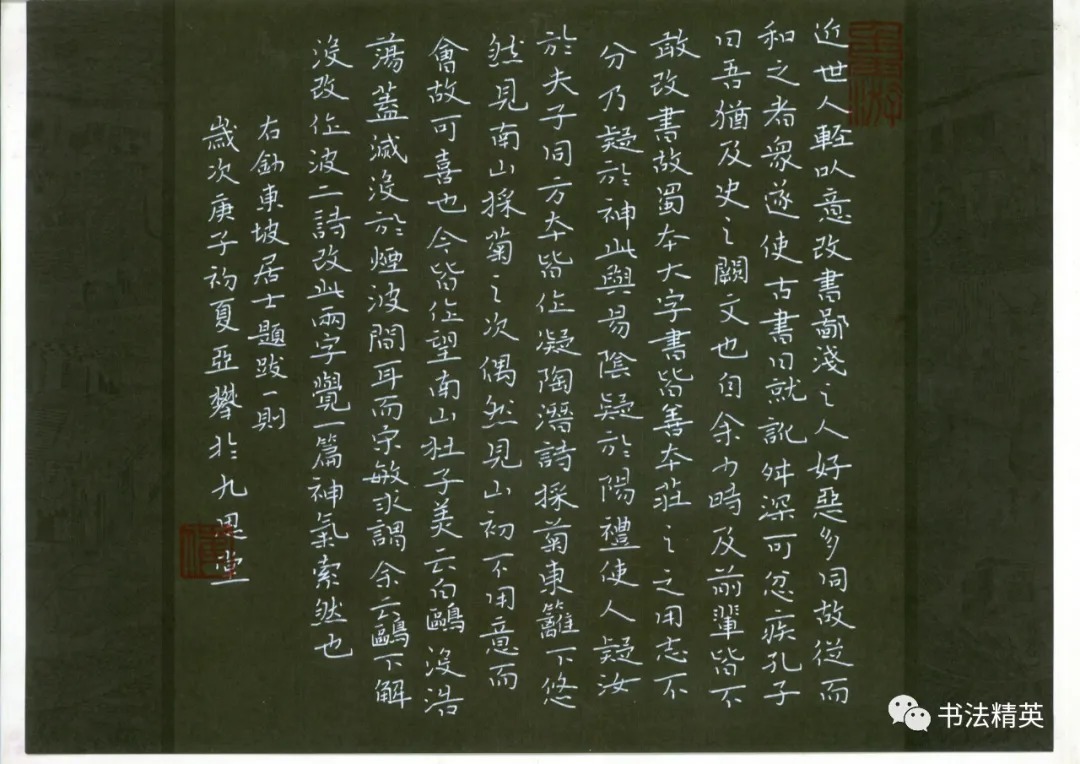 近世人輕以意改書鄙淺之人好惡多同故從而
和之者衆遂使古書日就訛舛深可忿疾孔子
曰吾猶及史之闕文也自余少時及前輩皆不
敢改書故蜀本大字書皆善本莊之之用志不
分乃疑於神此與易陰疑於陽禮使人疑汝
於夫子同方本皆作凝陶潛詩採菊東籬下悠
然見南山採菊之次偶然見山初不用意而
會故可喜也今皆作望南山杜子美云白鷗沒浩
蕩蓋滅沒於煙波間耳而宋敏求謂余云鷗不解
沒改作波二詩改此兩字覺一篇神氣索然也
右錄東坡居士題跋一則
歲次庚子初夏亞攀於九思堂
书法精英